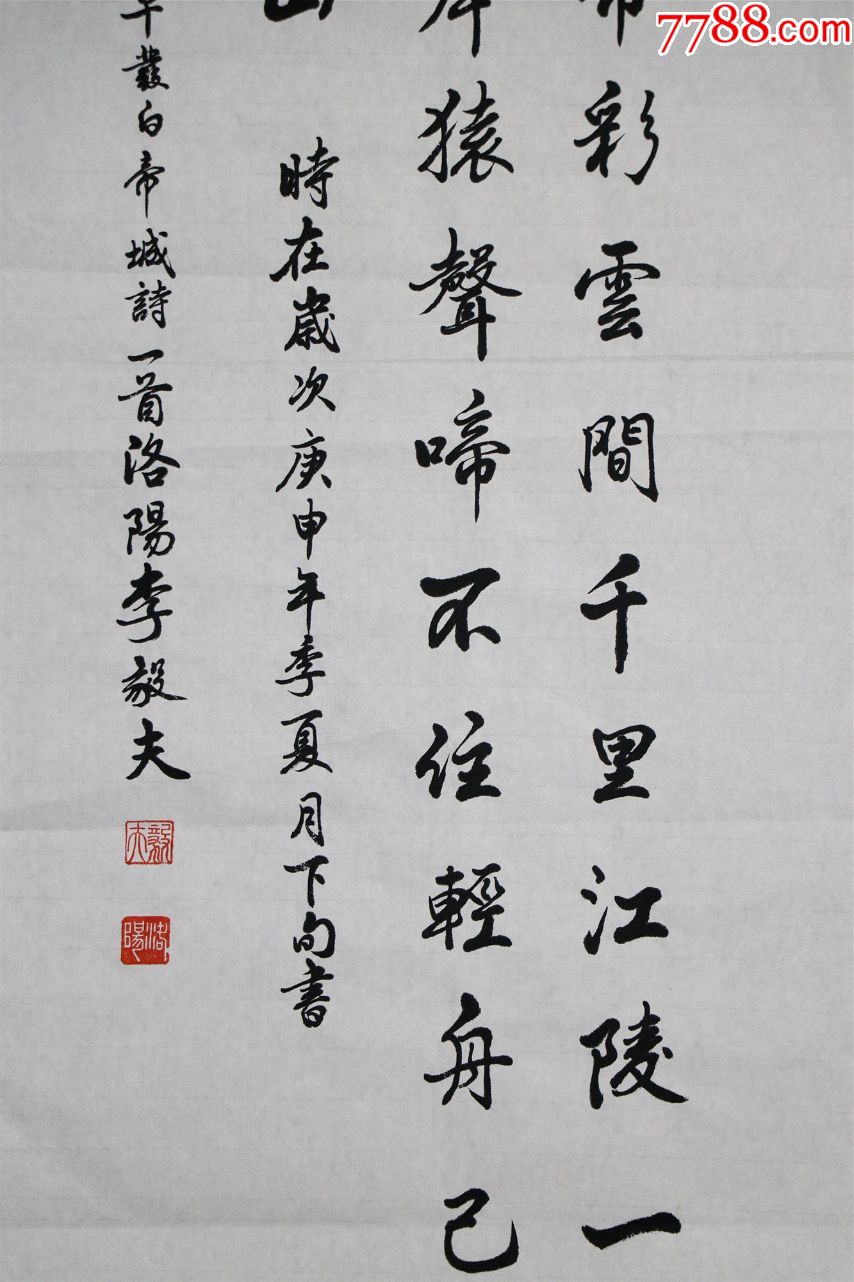 7788.com
彩雲間千里江陵一
猿聲啼不住輕舟已
時在歲次庚申年季夏月下旬書
發白帝城詩一首洛陽李毅夫
毅夫
洛陽